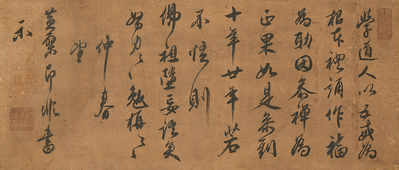 學道人以五戒為
根本禮誦作福
為助因參禪為
正果如是參到
十年廿年若
不悟則
佛祖墮妄語矣
努力努力勉旃勉旃
仲春
望
黃檗即非書
示